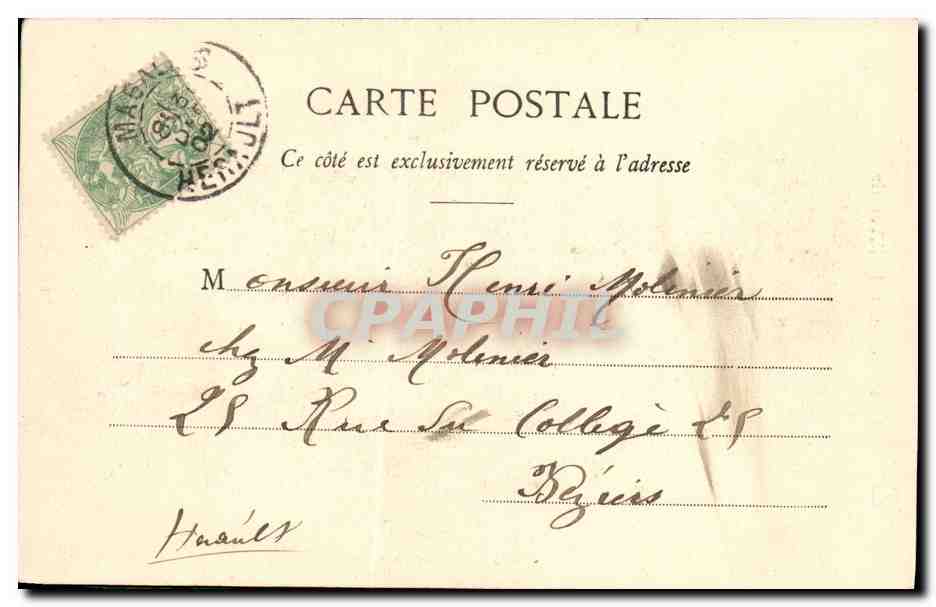 CARTE POSTALE
Ce côté est exclusivement réservé à l'adresse
Monsieur Henri Molinier
chez Mr Molinier
25 Rue du Collège 25
Béziers
Hérault
HERAULT
CPAPHIL